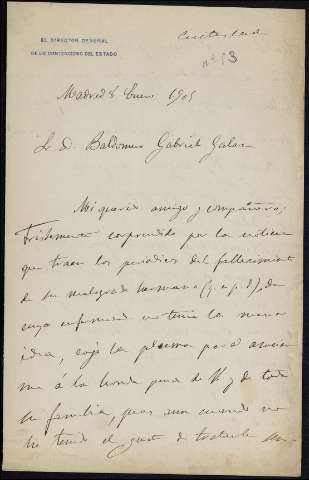 EL DIRECTOR GENERAL
DE LO CONTENCIOSO DEL ESTADO
Contestada
nº 13
Madrid 8 Enero 1905
Sr. D. Baldomero Gabriel Galan
Mi querido amigo y compañero;
Tristemente sorprendido por la noticia
que traen los periodicos del fallecimiento
de su malogrado hermano (q. e. p. d), de
cuya enfermedad no tenia la menor
idea, cojo la pluma para asociar
me á la honda pena de V. y de toda
su familia, pues aun cuando no
he tenido el gusto de tratarle